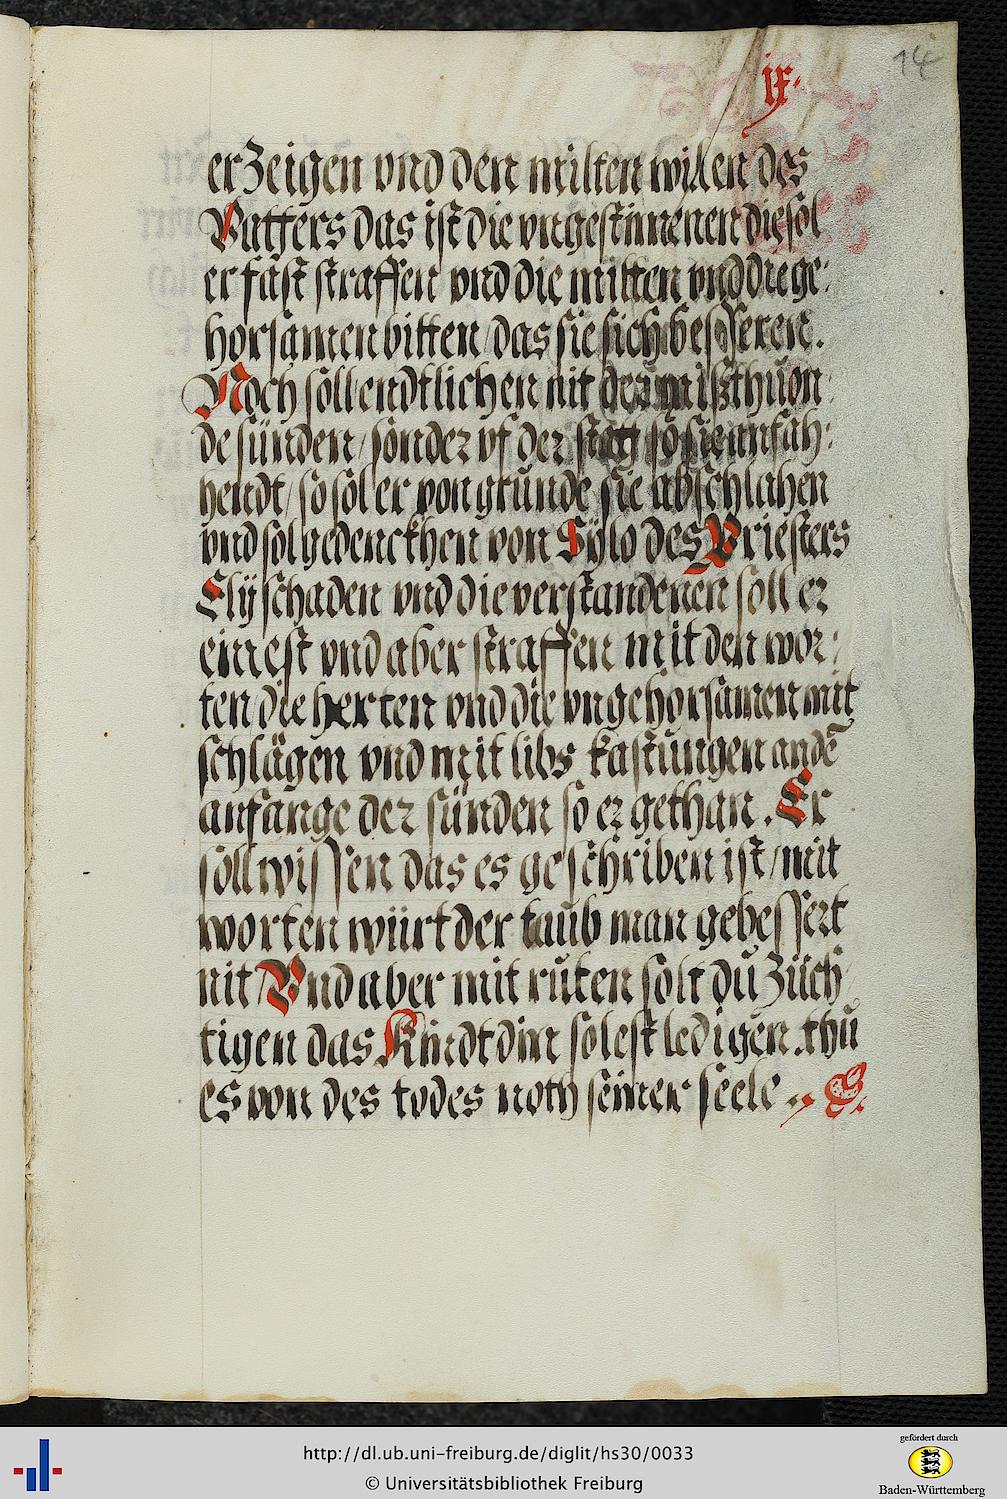 ix·
14
erzeigen vnd den milten willen des
Vatters das ist die vngestimmenen die sol
er fast straffen vnd die mitten vnd die ge:
horsamen bitten / das sie sich besseren.
Noch soll endtlichen nit der mißthuon:
de sünden / sonder vf der statt so sie anfäh:
hendt / so sol er von grunde sie abschlahen
vnd sol gedenckhen von Sylo des Priesters
Elÿ schaden vnd die verstandenen soll er
einest vnd aber straffen mit den wor:
ten / die herten vnd die vngehorsamen mit
schlägen vnd mit libs kastungen an dē
anfange der sünden so er gethan. Er
soll wissen das es geschriben ist / mit
worten würt der taub man gebessert
nit / Vnd aber mit růten solt du züch/
tigen das Kindt din so lest ledigen thů
es von des todes noth seiner seele.
http://dl.ub.uni-freiburg.de/diglit/hs30/0033
© Universitätsbibliothek Freiburg
gefördert durch
Baden-Württemberg